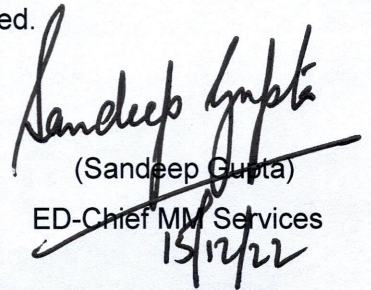 ed.
Sandeep Gupta
(Sandeep Gupta)
ED-Chief MM Services
15/12/22